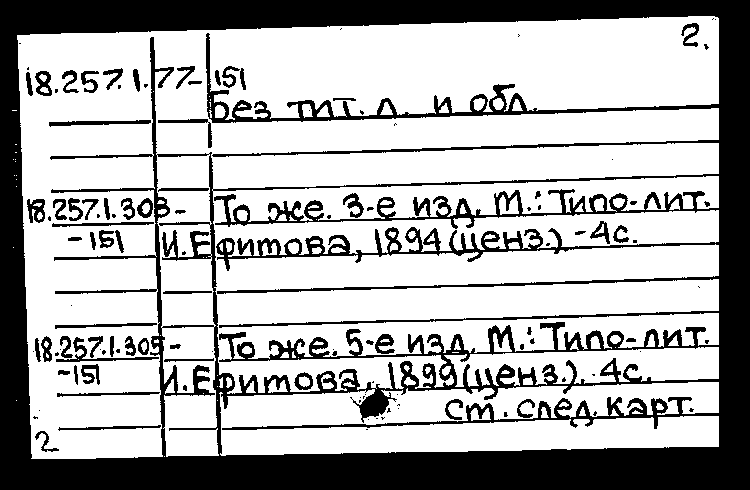 2.
18.257.1.77-151
Без тит. л. и обл.
18.257.1.303- То же. 3-е изд. М.: Типо-лит.
-151 И. Ефитова, 1894 (ценз.) - 4с.
18.257.1.305- То же. 5-е изд. М.: Типо-лит.
-151 И. Ефитова, 1899 (ценз.). 4с.
ст. след. карт.
2